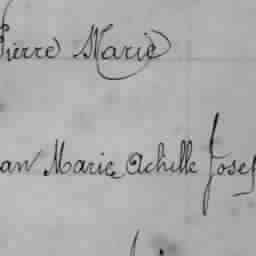 Pierre Marie
an Marie Achille Josef